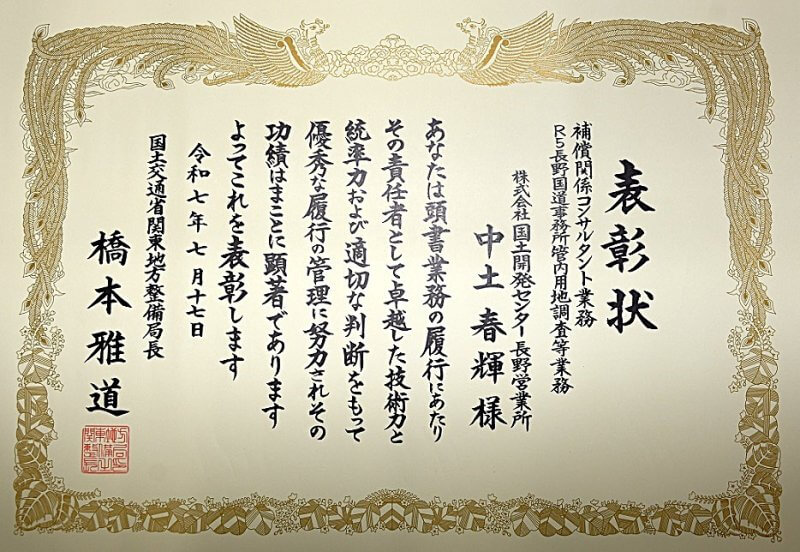 表彰状
補償関係コンサルタント業務
R5長野国道事務所管内用地調査等業務
株式会社国土開発センター長野営業所
中土春輝様
あなたは頭書業務の履行にあたり
その責任者として卓越した技術力と
統率力および適切な判断をもって
優秀な履行の管理に努力されその
功績はまことに顕著であります
よってこれを表彰します
令和七年七月十七日
国土交通省関東地方整備局長
橋本雅道